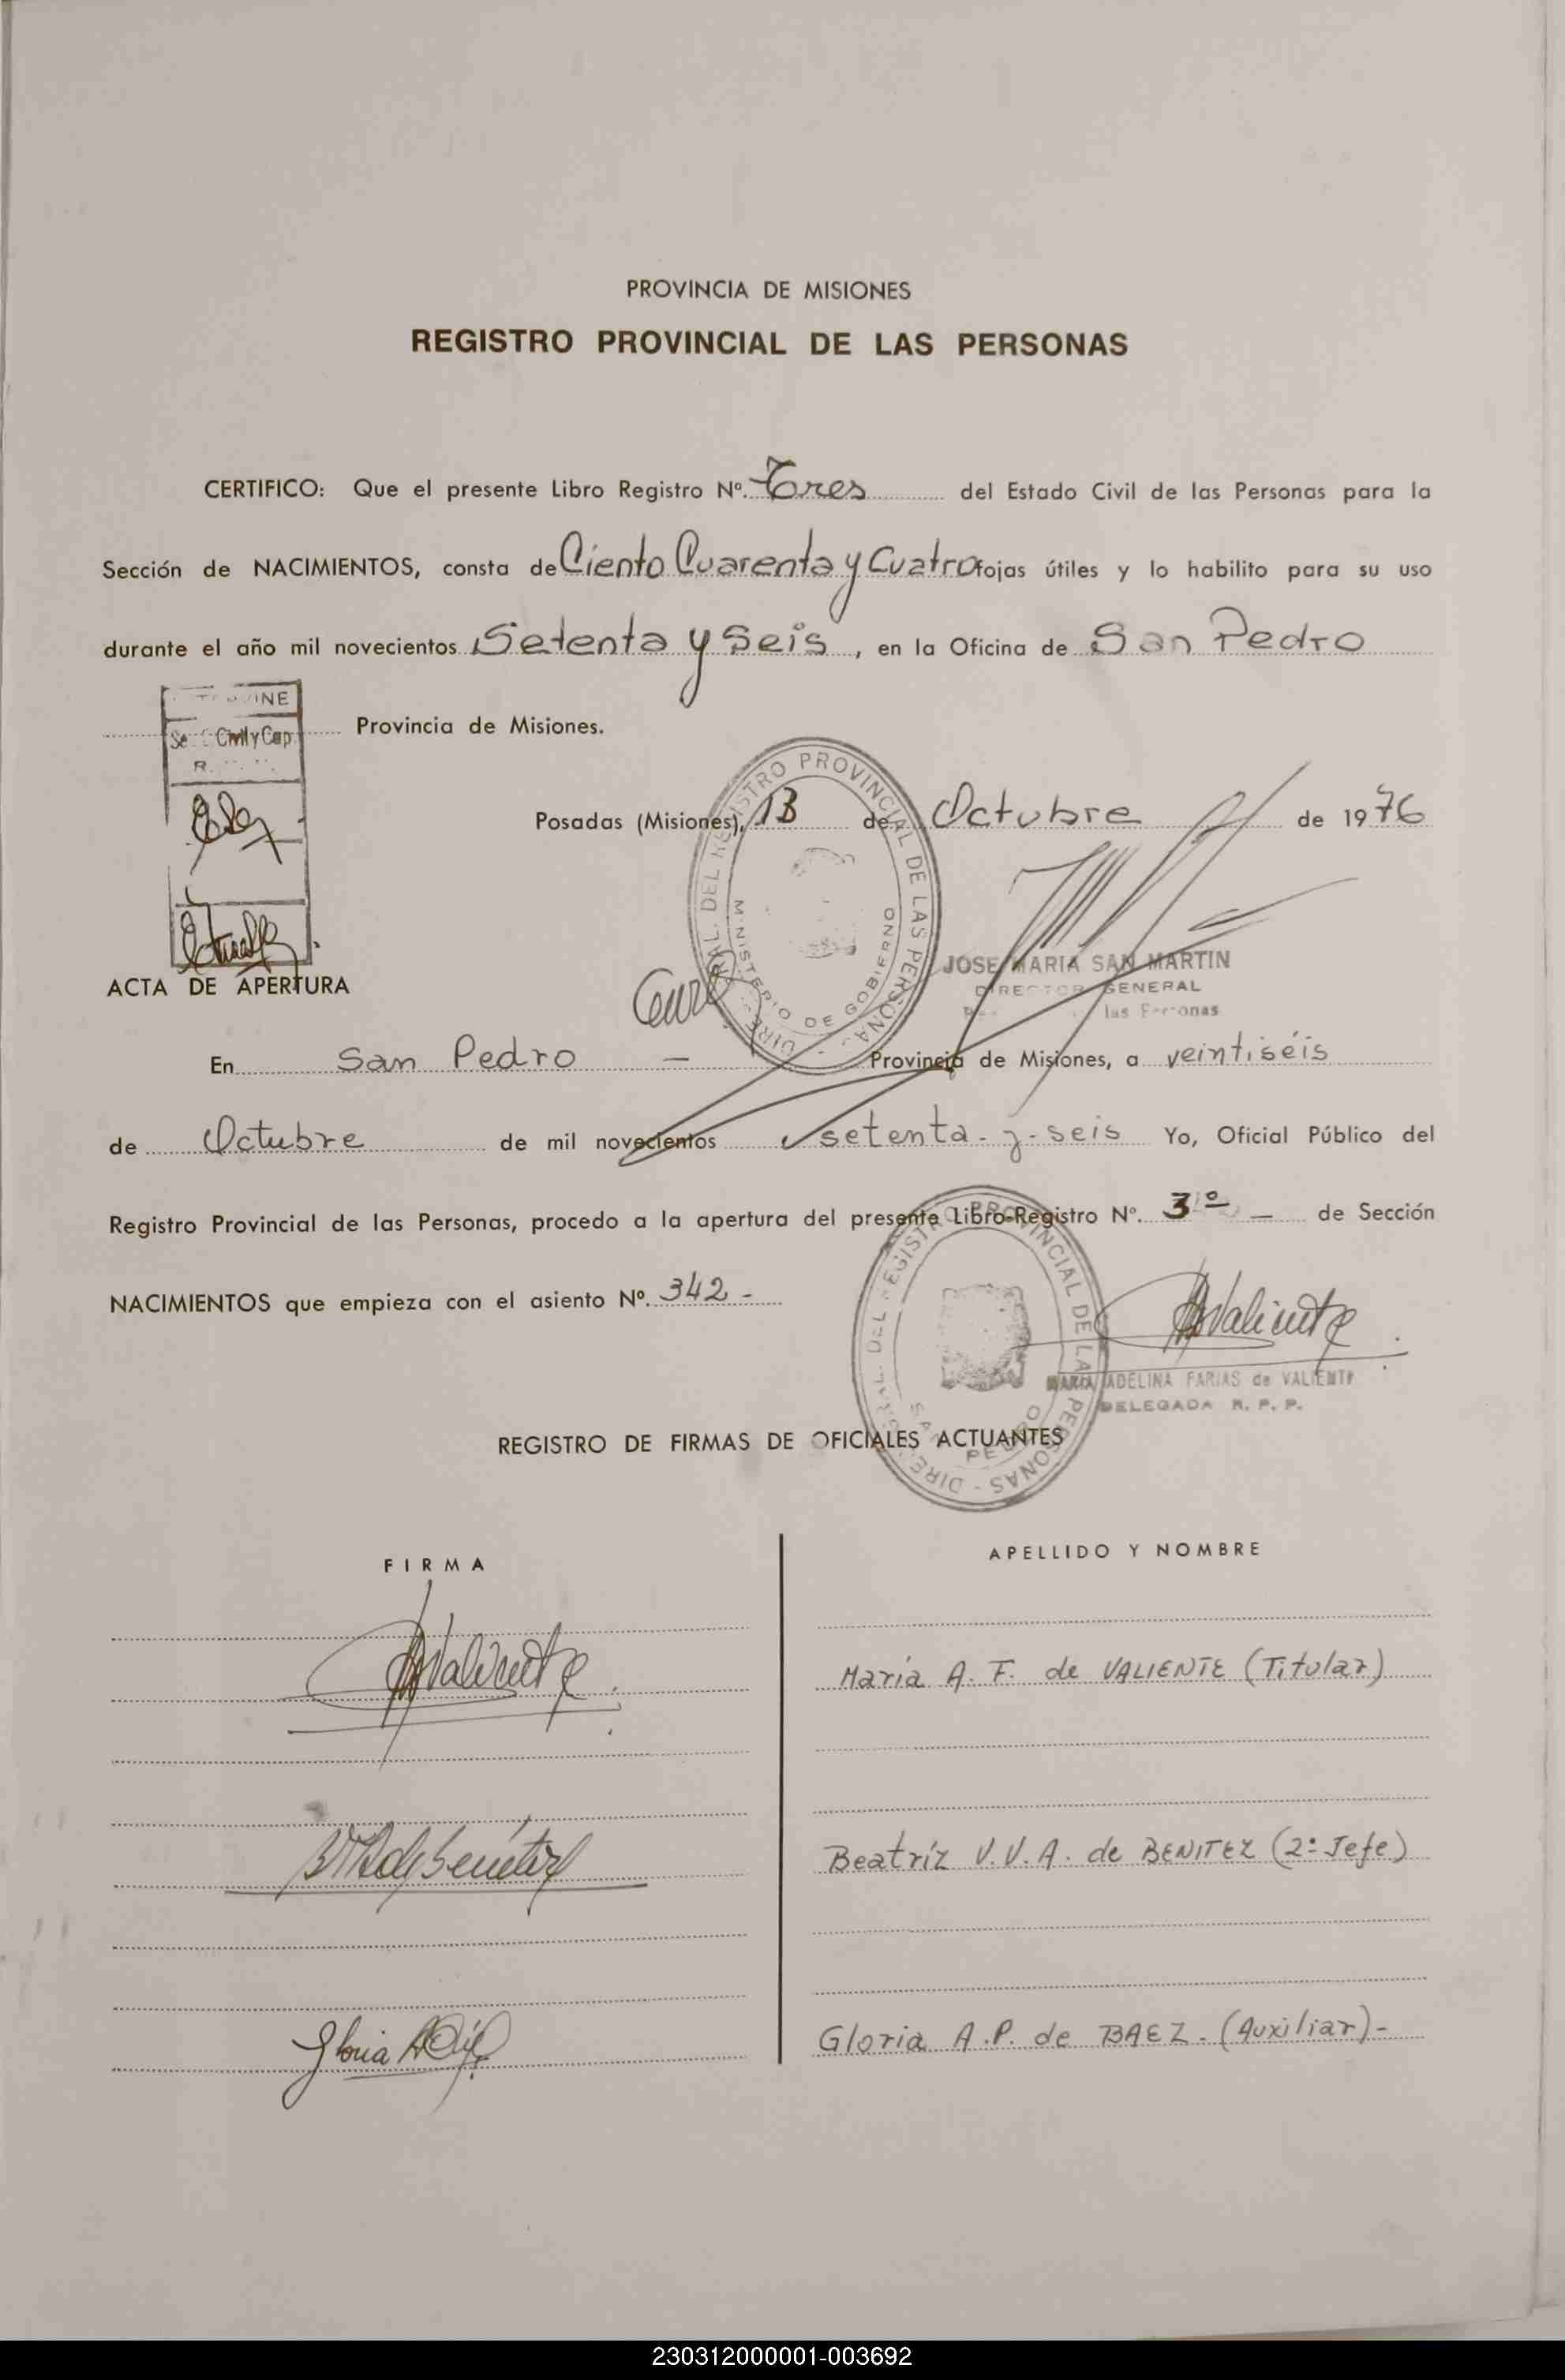 PROVINCIA DE MISIONES
REGISTRO PROVINCIAL DE LAS PERSONAS
CERTIFICO: Que el presente Libro Registro Nº. Tres del Estado Civil de las Personas para la
Sección de NACIMIENTOS, consta de Ciento Cuarenta y Cuatro fojas útiles y lo habilito para su uso
durante el año mil novecientos Setenta y Seis, en la Oficina de San Pedro
Provincia de Misiones.
Civil y Cap.
Posadas (Misiones), 13 de Octubre de 1976
DEL REGISTRO PROVINCIAL DE LAS PERSONAS
MINISTERIO DE GOBIERNO
JOSE MARIA SAN MARTIN
DIRECTOR GENERAL
las Personas
ACTA DE APERTURA
En San Pedro - Provincia de Misiones, a veintiséis
de Octubre de mil novecientos setenta-y-seis Yo, Oficial Público del
Registro Provincial de las Personas, procedo a la apertura del presente Libro-Registro Nº. 3º - de Sección
NACIMIENTOS que empieza con el asiento Nº. 342-
DEL REGISTRO PROVINCIAL DE LAS PERSONAS
SAN PEDRO
AValiente
MARIA ADELINA FARIAS de VALIENTE
DELEGADA R. P. P.
REGISTRO DE FIRMAS DE OFICIALES ACTUANTES
FIRMA
APELLIDO Y NOMBRE
AValiente
María A. F. de VALIENTE (Titular)
de Benítez
Beatríz V.V.A. de BENITEZ (2º Jefe)
Gloria
Gloria A.P. de BAEZ.- (Auxiliar)-
230312000001-003692